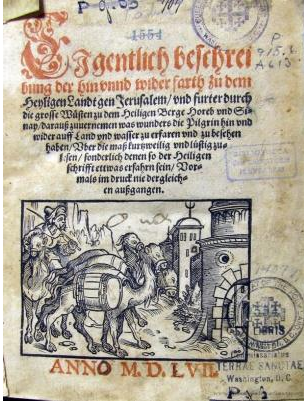 1554
P
915.6
A613
Eigentlich beschrei
bung der hin vnnd wider farth zů dem
Heyligen Landt gen Jerusalem / vnd furter durch
die grosse Wüsten zu dem Heiligen Berge Horeb vnd Si-
nay / darauß zuuernemen was wunders die Pilgrin hin vnd
wider auff Land vnd wasser zu erfaren vnd zu besehen
haben / Vber die maß kurzweilig vnd lüstig zu
lesen / sonderlich denen so der Heiligen
schrifft ettwas erfahrn sein / Vor-
mals im druck nie dergleich-
en außgangen.
ANNO M. D. LVII
TERRAE SANCTAE
Washington, D.C.